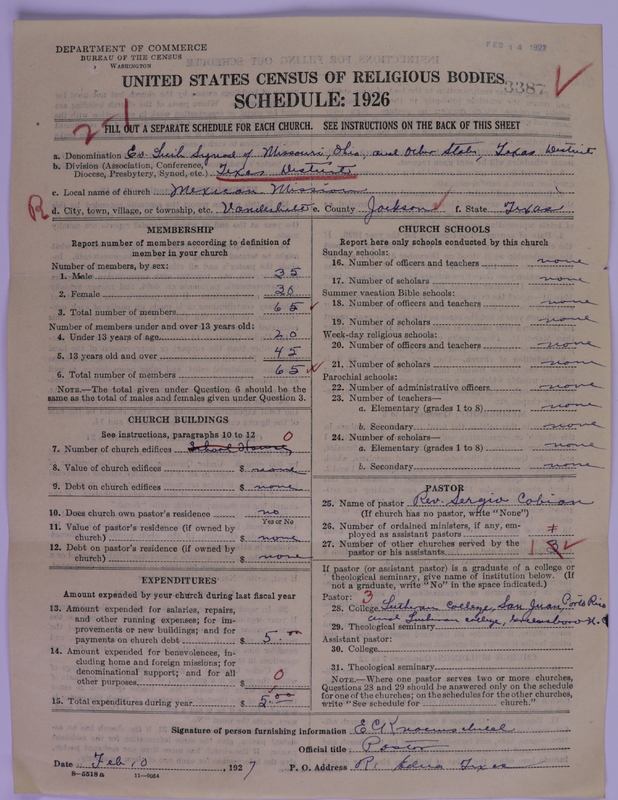 DEPARTMENT OF COMMERCE
BUREAU OF THE CENSUS
WASHINGTON
FEB 14 1927
UNITED STATES CENSUS OF RELIGIOUS BODIES
3387
SCHEDULE: 1926
2-1
FILL OUT A SEPARATE SCHEDULE FOR EACH CHURCH. SEE INSTRUCTIONS ON THE BACK OF THIS SHEET
a. Denomination Ev Luth Synod of Missouri, Ohio, and Other States, Texas District
b. Division (Association, Conference, Diocese, Presbytery, Synod, etc.) Texas District
c. Local name of church Mexican Mission
R d. City, town, village, or township, etc. Vanderbilt e. County Jackson f. State Texas
MEMBERSHIP
Report number of members according to definition of
member in your church
Number of members, by sex:
1. Male 35
2. Female 30
3. Total number of members 65
Number of members under and over 13 years old:
4. Under 13 years of age 20
5. 13 years old and over 45
6. Total number of members 65
NOTE.—The total given under Question 6 should be
same as the total of males and females given under Question 3.
CHURCH BUILDINGS
See instructions, paragraphs 10 to 12
7. Number of church edifices School House 0
8. Value of church edifices $ none
9. Debt on church edifices $ none
10. Does church own pastor's residence no
Yes or No
11. Value of pastor's residence (if owned by
church) $ none
12. Debt on pastor's residence (if owned by
church) $ none
EXPENDITURES
Amount expended by your church during last fiscal year
13. Amount expended for salaries, repairs,
and other running expenses; for im-
provements or new buildings; and for
payments on church debt $ 5.00
14. Amount expended for benevolences, in-
cluding home and foreign missions; for
denominational support; and for all
other purposes $ 0
15. Total expenditures during year $ 5.00
CHURCH SCHOOLS
Report here only schools conducted by this church
Sunday schools:
16. Number of officers and teachers none
17. Number of scholars none
Summer vacation Bible schools:
18. Number of officers and teachers none
19. Number of scholars none
Week-day religious schools:
20. Number of officers and teachers none
21. Number of scholars none
Parochial schools:
22. Number of administrative officers none
23. Number of teachers—
a. Elementary (grades 1 to 8) none
b. Secondary none
24. Number of scholars—
a. Elementary (grades 1 to 8) none
b. Secondary none
PASTOR
25. Name of pastor Rev. Sergio Cobian
(If church has no pastor, write "None")
26. Number of ordained ministers, if any, em-
ployed as assistant pastors
27. Number of other churches served by the
pastor or his assistants 1
If pastor (or assistant pastor) is a graduate of a college or
theological seminary, give name of institution below. (If
not a graduate, write "No" in the space indicated.)
Pastor: 3
28. College Lutheran College, San Juan Porto Rico
and Lutheran College, Greensboro N.C.
29. Theological seminary
Assistant pastor:
30. College
31. Theological seminary
NOTE.—Where one pastor serves two or more churches,
Questions 28 and 29 should be answered only on the schedule
for one of the churches; on the schedules for the other churches,
write "See schedule for church."
Signature of person furnishing information E C Knoernschild
Official title Pastor
Date Feb 10, 1927 P. O. Address R. Edna Texas
8—5518 a 11—9064